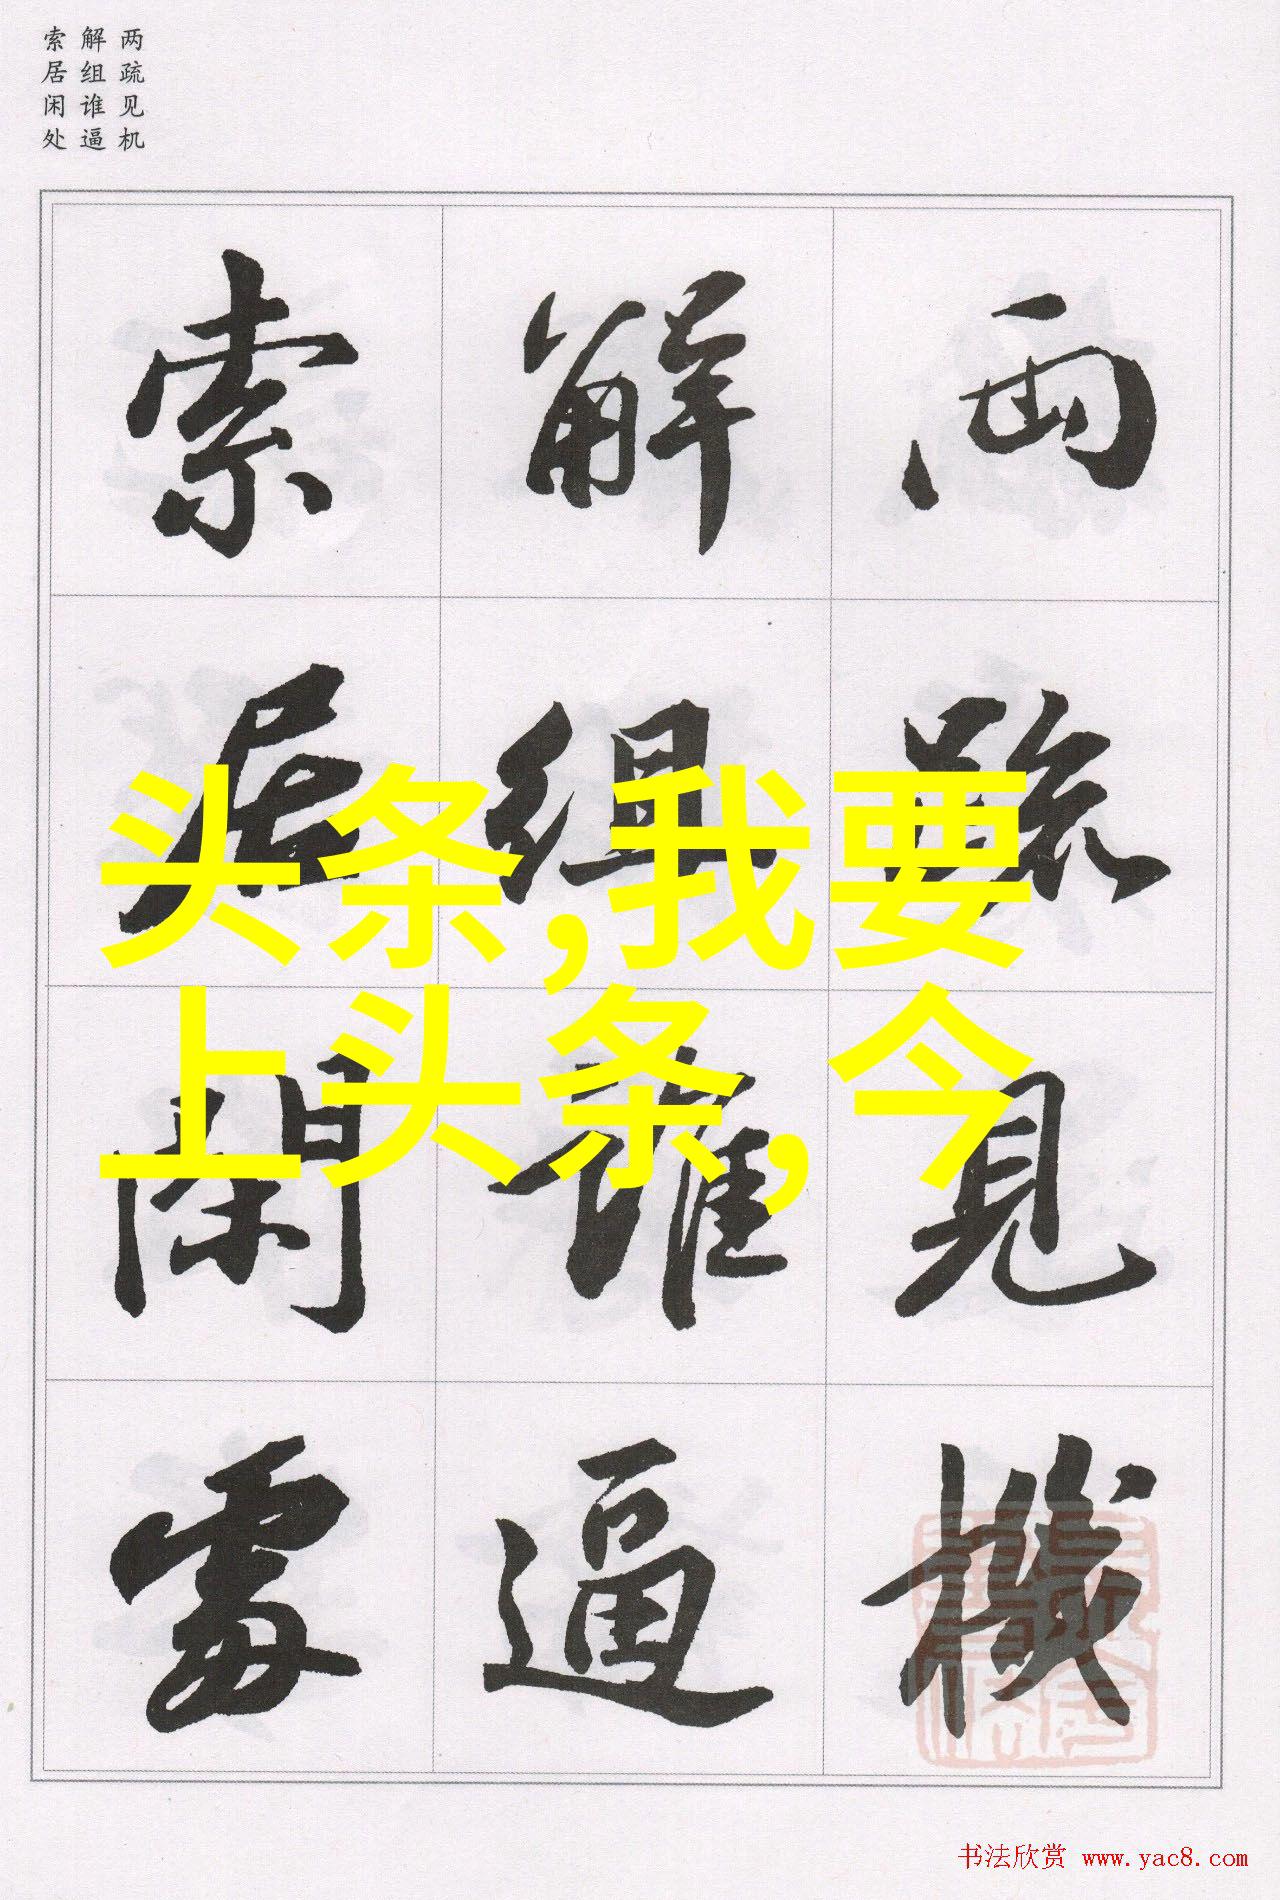 两疏见机
解组谁逼
索居闲处
兩疏見機
解組誰逼
索居閒處
头条,我要
上头条,今
书法欣赏 www.yac8.com